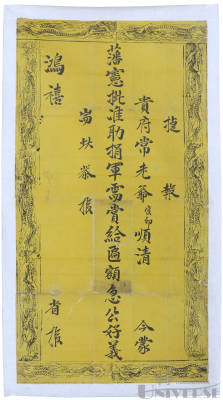 捷報
貴府常老爺 印順清 今蒙
藩憲批准助捐軍需賞給匾額急公好義
報
鴻禧 省報
UNIVERSE